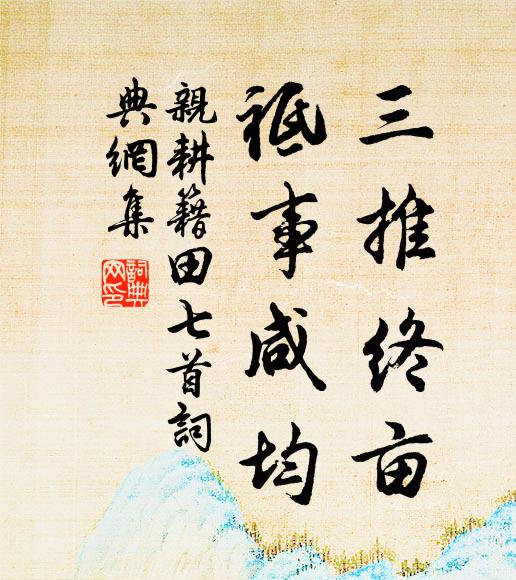 三推终亩
祗事咸均
親耕籍田七首詞
典網集
詞典
网印